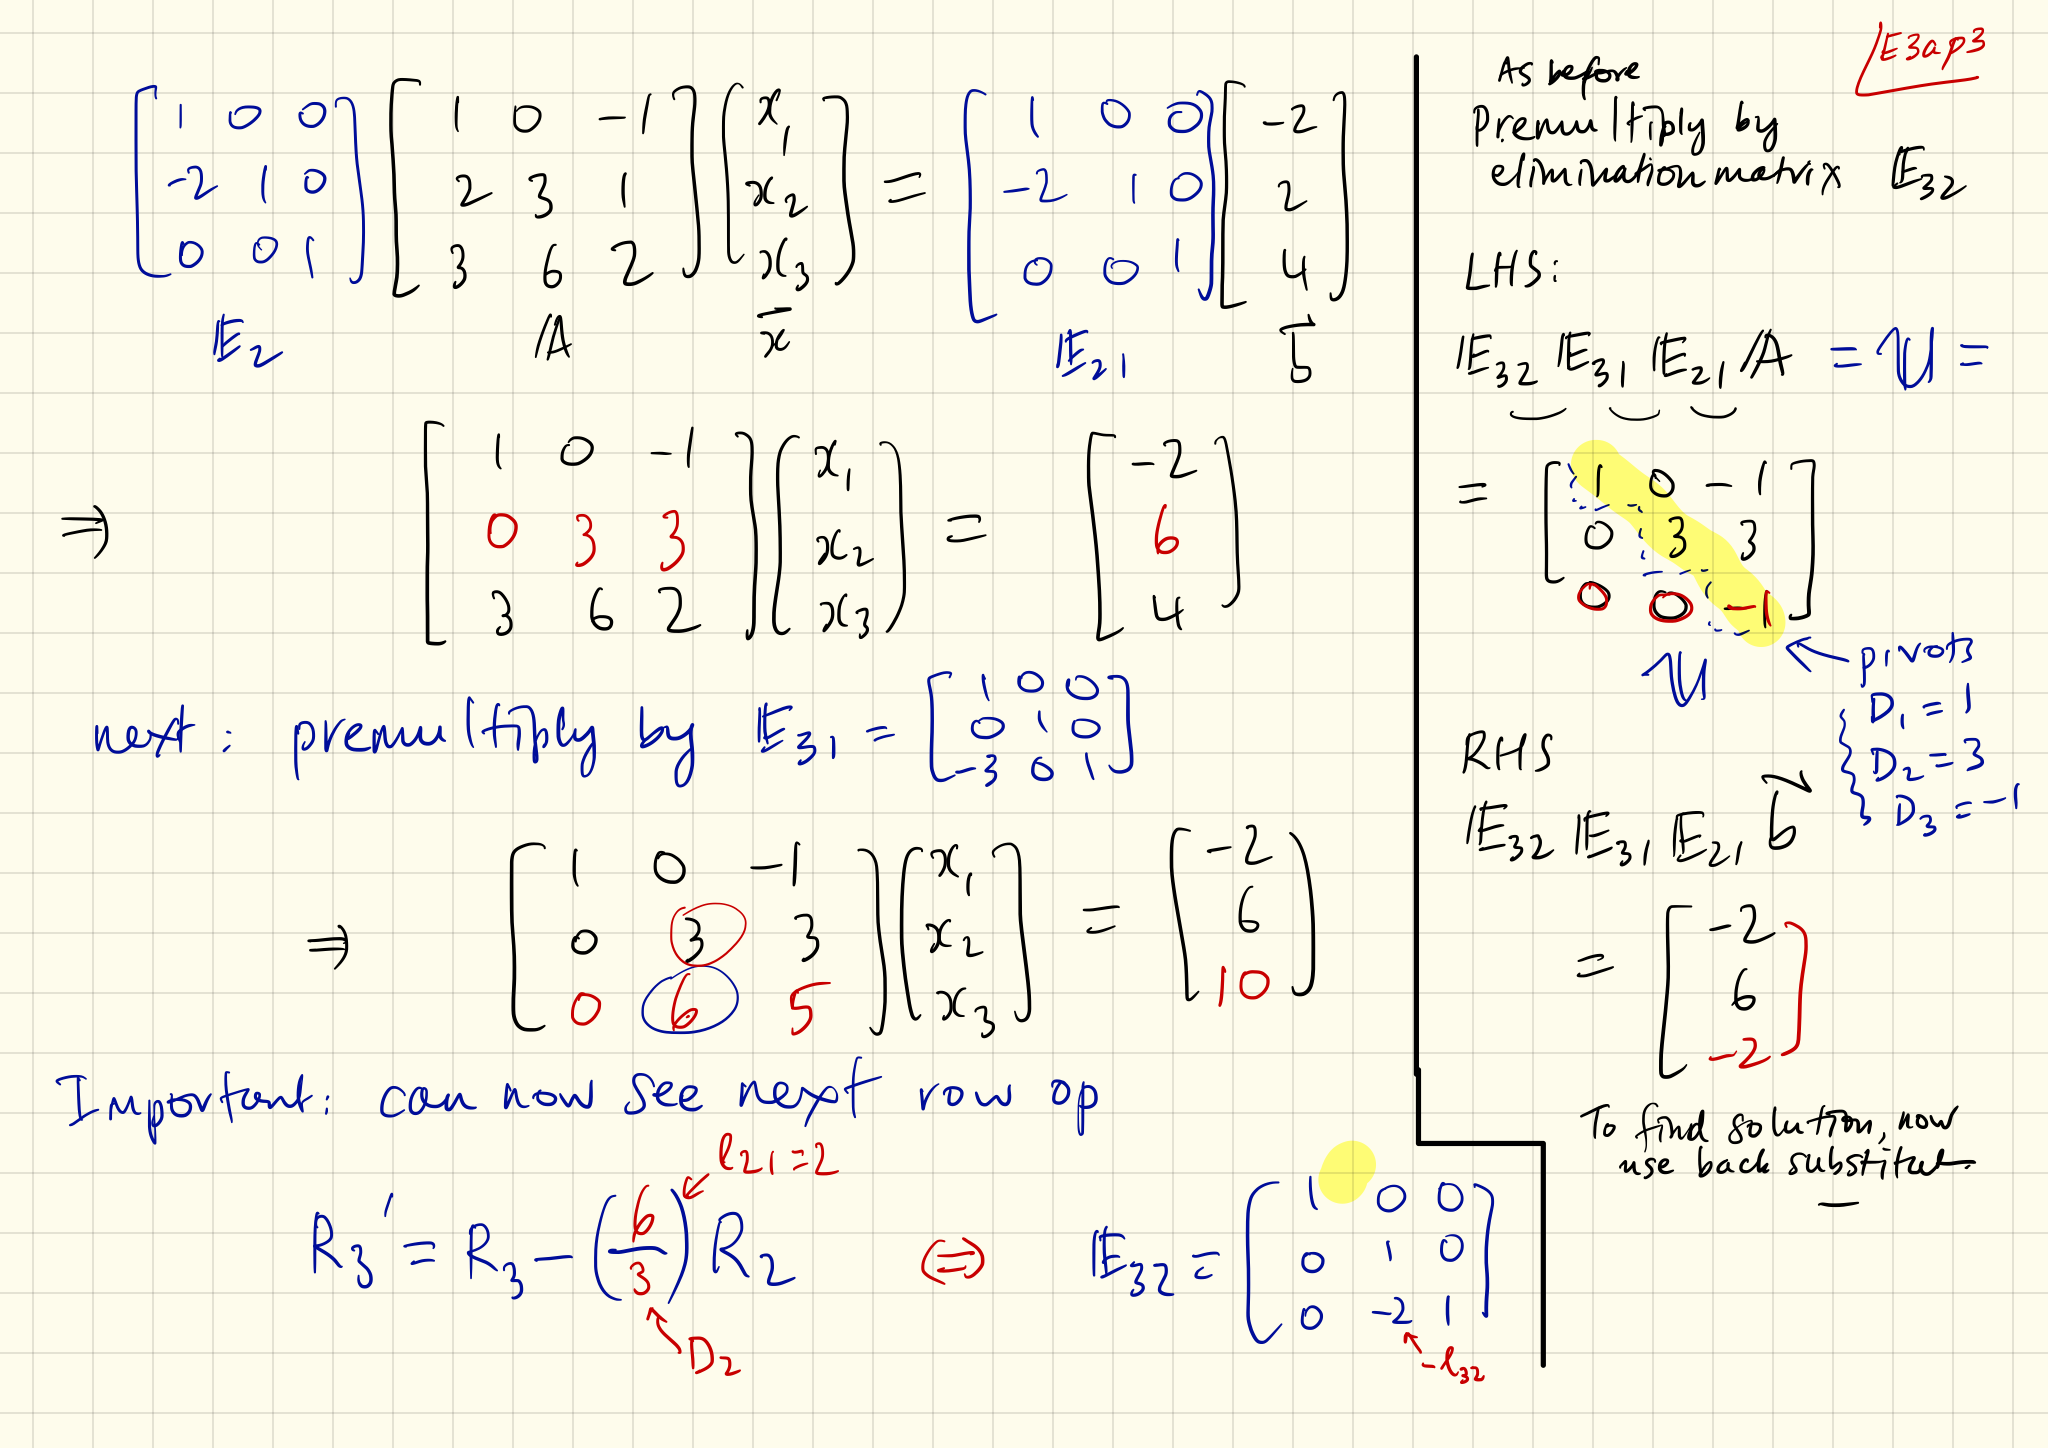 [1 0 0] [1 0 -1] [x₁] = [1 0 0] [-2]
[-2 1 0] [2 3 1] [x₂] [-2 1 0] [2]
[0 0 1] [3 6 2] [x₃] [0 0 1] [4]
E₂ A x̄ E₂₁ b⃗
⇒ [1 0 -1] [x₁] = [-2]
[0 3 3] [x₂] [6]
[3 6 2] [x₃] [4]
next: premultiply by E₃₁ = [1 0 0]
[0 1 0]
[-3 0 1]
⇒ [1 0 -1] [x₁] = [-2]
[0 3 3] [x₂] [6]
[0 6 5] [x₃] [10]
Important: can now see next row op
ℓ₂₁=2
R₃' = R₃ - (6/3) R₂ ⇔ E₃₂ = [1 0 0]
[0 1 0]
[0 -2 1]
D₂
-ℓ₃₂
E3ap3
As before
Premultiply by
elimination matrix E₃₂
LHS:
E₃₂ E₃₁ E₂₁ A = U =
= [1 0 -1]
[0 3 3]
[0 0 -1]
U
pivots
D₁ = 1
D₂ = 3
D₃ = -1
RHS
E₃₂ E₃₁ E₂₁ b⃗
= [-2]
[6]
[-2]
To find solution, now
use back substitut